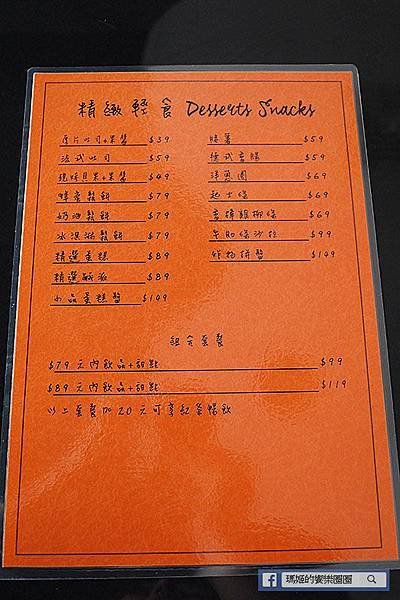 精緻輕食 Desserts Snacks
厚片吐司+果醬 $39
法式吐司 $59
現烤貝果+果醬 $49
蜂蜜鬆餅 $79
奶油鬆餅 $79
冰淇淋鬆餅 $79
精選蛋糕 $89
精選鹹派 $89
小品蛋糕盤 $149
脆薯 $59
德式香腸 $59
洋蔥圈 $69
起士條 $69
香檸雞柳條 $69
牛肋條沙拉 $99
炸物拼盤 $149
組合套餐
$79元內飲品+甜點 $99
$89元內飲品+甜點 $119
以上套餐加20元可享紅茶暢飲
瑪姬的饗樂圈圈